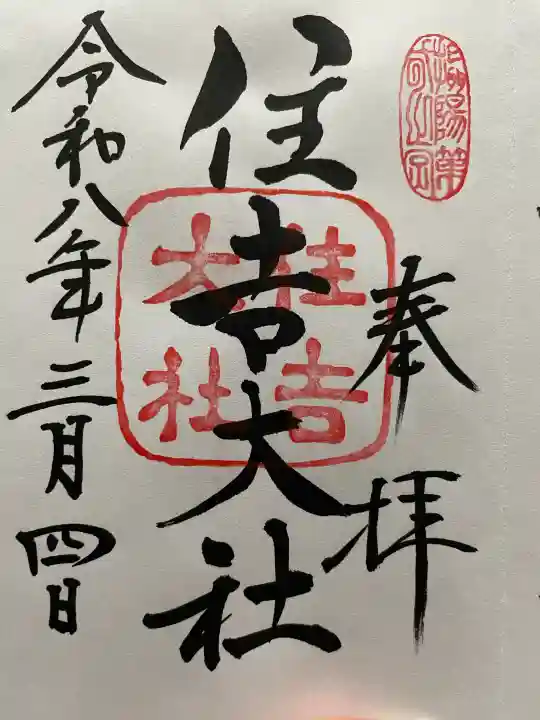 奉拝
住吉大社
住吉
大社
令和八年三月四日